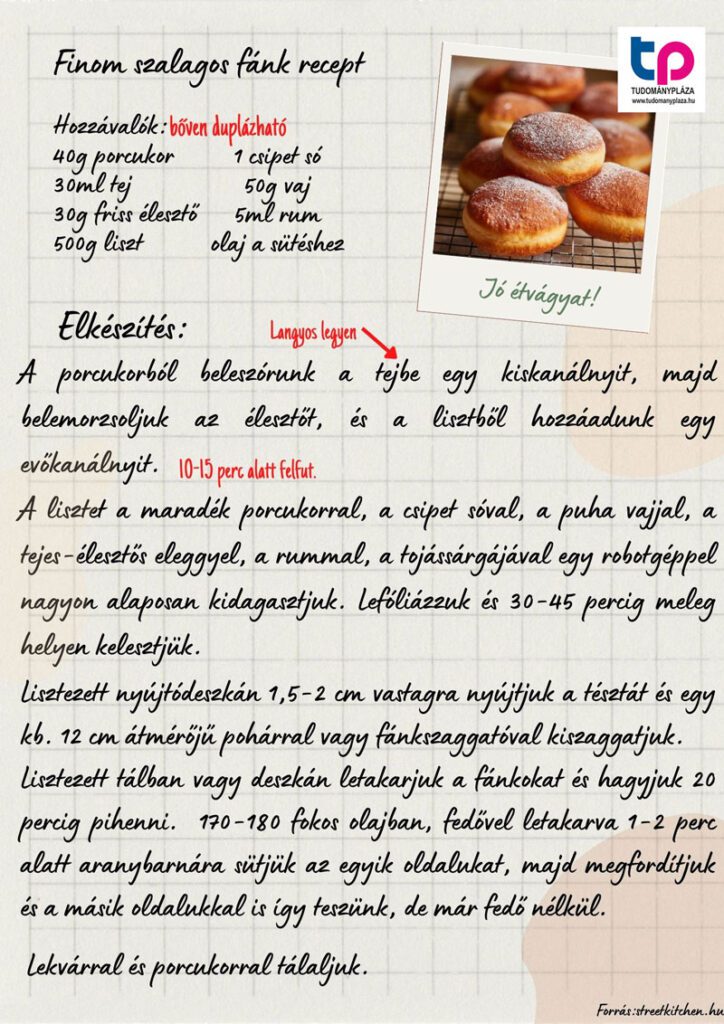 Finom szalagos fánk recept
tp
TUDOMÁNYPLÁZA
www.tudomanyplaza.hu
Hozzávalók: bőven duplázható
40g porcukor 1 csipet só
30ml tej 50g vaj
30g friss élesztő 5ml rum
500g liszt olaj a sütéshez
Jó étvágyat!
Elkészítés:
Langyos legyen
A porcukorból beleszórunk a tejbe egy kiskanálnyit, majd
belemorzsoljuk az élesztőt, és a lisztből hozzáadunk egy
evőkanálnyit. 10-15 perc alatt felfut.
A lisztet a maradék porcukorral, a csipet sóval, a puha vajjal, a
tejes-élesztős eleggyel, a rummal, a tojássárgájával egy robotgéppel
nagyon alaposan kidagasztjuk. Lefóliázzuk és 30-45 percig meleg
helyen kelesztjük.
Lisztezett nyújtódeszkán 1,5-2 cm vastagra nyújtjuk a tésztát és egy
kb. 12 cm átmérőjű pohárral vagy fánkszaggatóval kiszaggatjuk.
Lisztezett tálban vagy deszkán letakarjuk a fánkokat és hagyjuk 20
percig pihenni. 170-180 fokos olajban, fedővel letakarva 1-2 perc
alatt aranybarnára sütjük az egyik oldalukat, majd megfordítjuk
és a másik oldalukkal is így teszünk, de már fedő nélkül.
Lekvárral és porcukorral tálaljuk.
Forrás:streetkitchen.hu